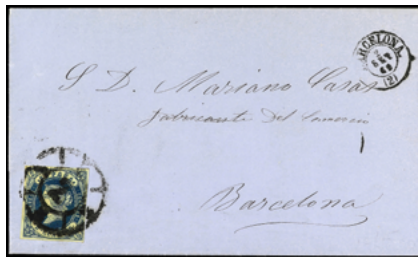 BARCELONA.
(2)
S. D. Mariano Casas
fabricante del Comercio
Barcelona